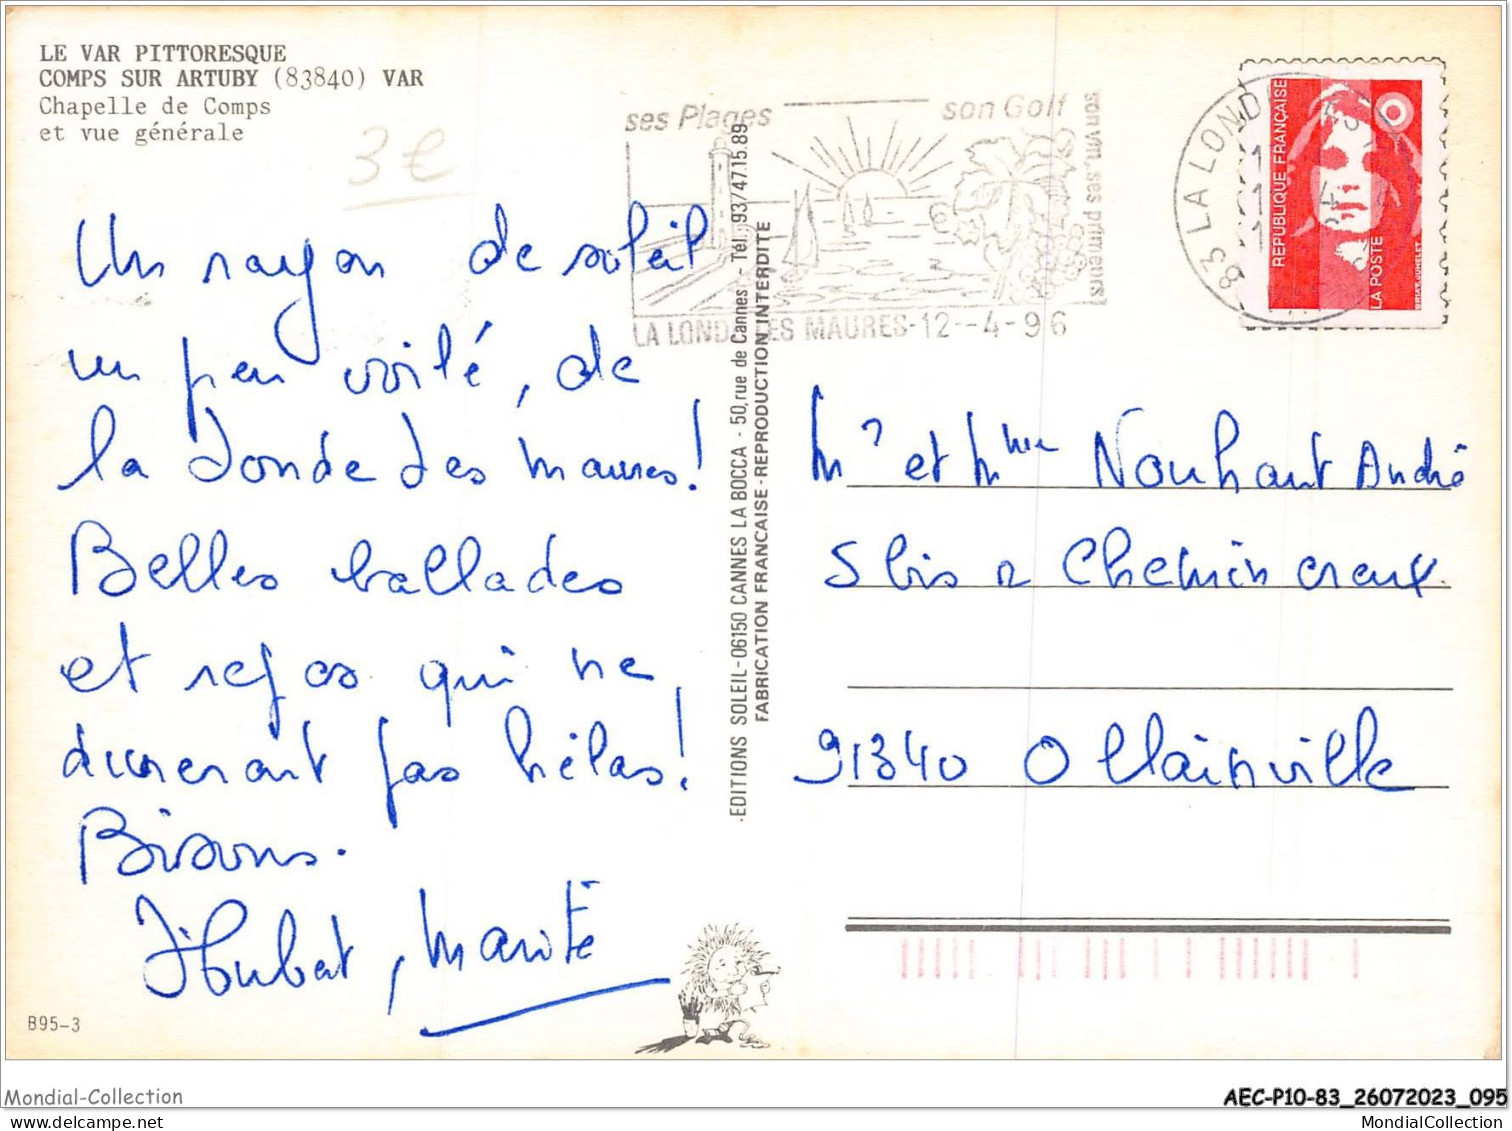 LE VAR PITTORESQUE
COMPS SUR ARTUBY (83840) VAR
Chapelle de Comps
et vue générale
3€
ses Plages
son Golf
son vin, ses primeurs!
LA LONDE LES MAURES-12--4-96
83 LA LONDE
RÉPUBLIQUE FRANÇAISE
LA POSTE
Un rayon de soleil
un peu voilé, de
la Londe des Maures!
Belles ballades
et repos qui ne
dureront pas hélas!
Bisous.
Hubert, Maïté
EDITIONS SOLEIL-06150 CANNES LA BOCCA - 50, rue de Cannes - Tél. 93/47.15.89
FABRICATION FRANCAISE-REPRODUCTION INTERDITE
Mr et Mme Nouhant André
5 bis r Chemin creux
91340 Ollainville
B95-3
Mondial-Collection
AEC-P10-83_26072023_095
MondialCollection